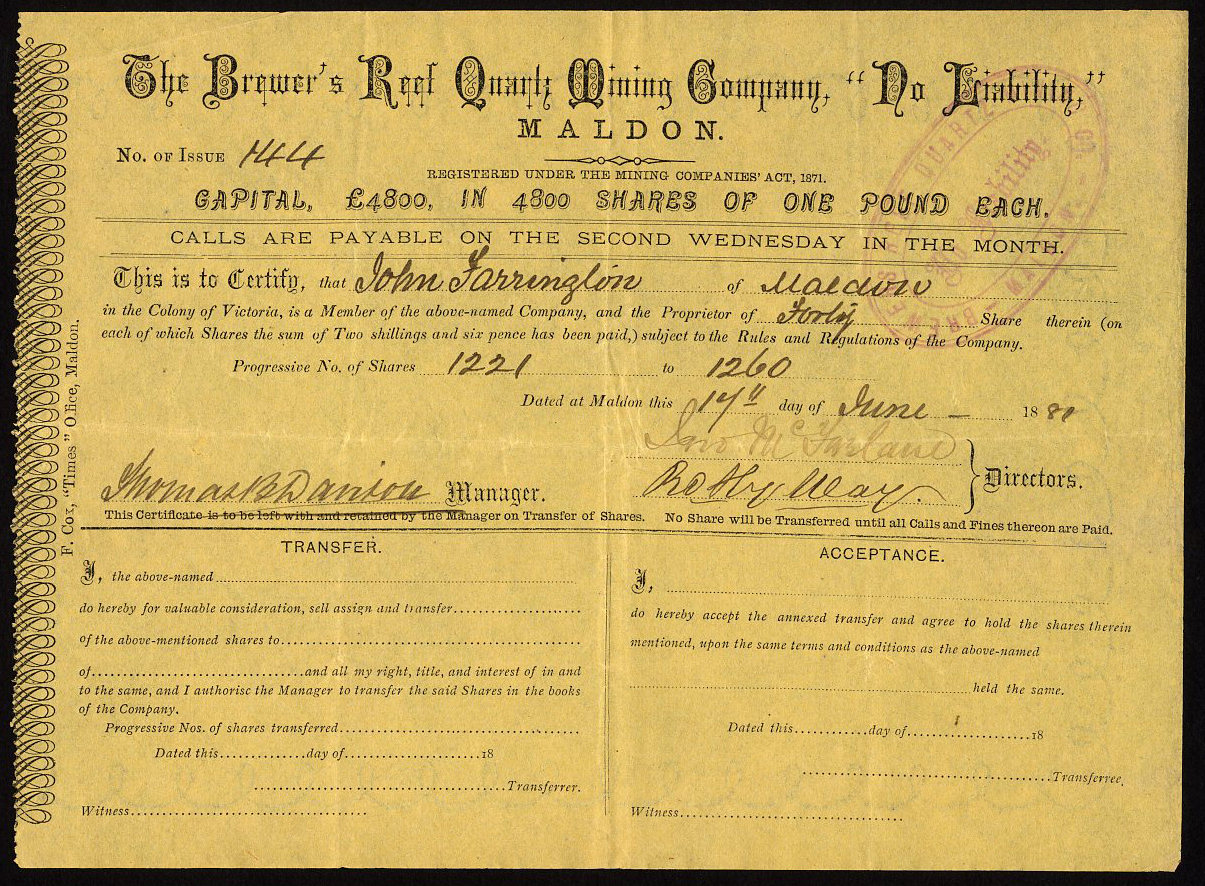 The Brewer's Reef Quartz Mining Company, "No Liability,"
MALDON.
No. of Issue 144
REGISTERED UNDER THE MINING COMPANIES' ACT, 1871.
CAPITAL, £4800, IN 4800 SHARES OF ONE POUND EACH.
CALLS ARE PAYABLE ON THE SECOND WEDNESDAY IN THE MONTH.
This is to Certify, that John Farrington of Maldon
in the Colony of Victoria, is a Member of the above-named Company, and the Proprietor of Forty Share therein (on
each of which Shares the sum of Two shillings and six pence has been paid,) subject to the Rules and Regulations of the Company.
Progressive No. of Shares 1221 to 1260
Dated at Maldon this 17" day of June 18
McFarlane
Way
Directors.
Thomas Manager.
This Certificate is to be left with and retained by the Manager on Transfer of Shares. No Share will be Transferred until all Calls and Fines thereon are Paid.
F. Cox, "Times" Office, Maldon.
BREWERS REEF QUARTZ CO. MALDON
No Liability
TRANSFER.
I, the above-named
do hereby for valuable consideration, sell assign and transfer
of the above-mentioned shares to
of and all my right, title, and interest of in and
to the same, and I authorise the Manager to transfer the said Shares in the books
of the Company.
Progressive Nos. of shares transferred
Dated this day of 18
Transferrer.
Witness
ACCEPTANCE.
I,
do hereby accept the annexed transfer and agree to hold the shares therein
mentioned, upon the same terms and conditions as the above-named
held the same.
Dated this day of 18
Transferree.
Witness